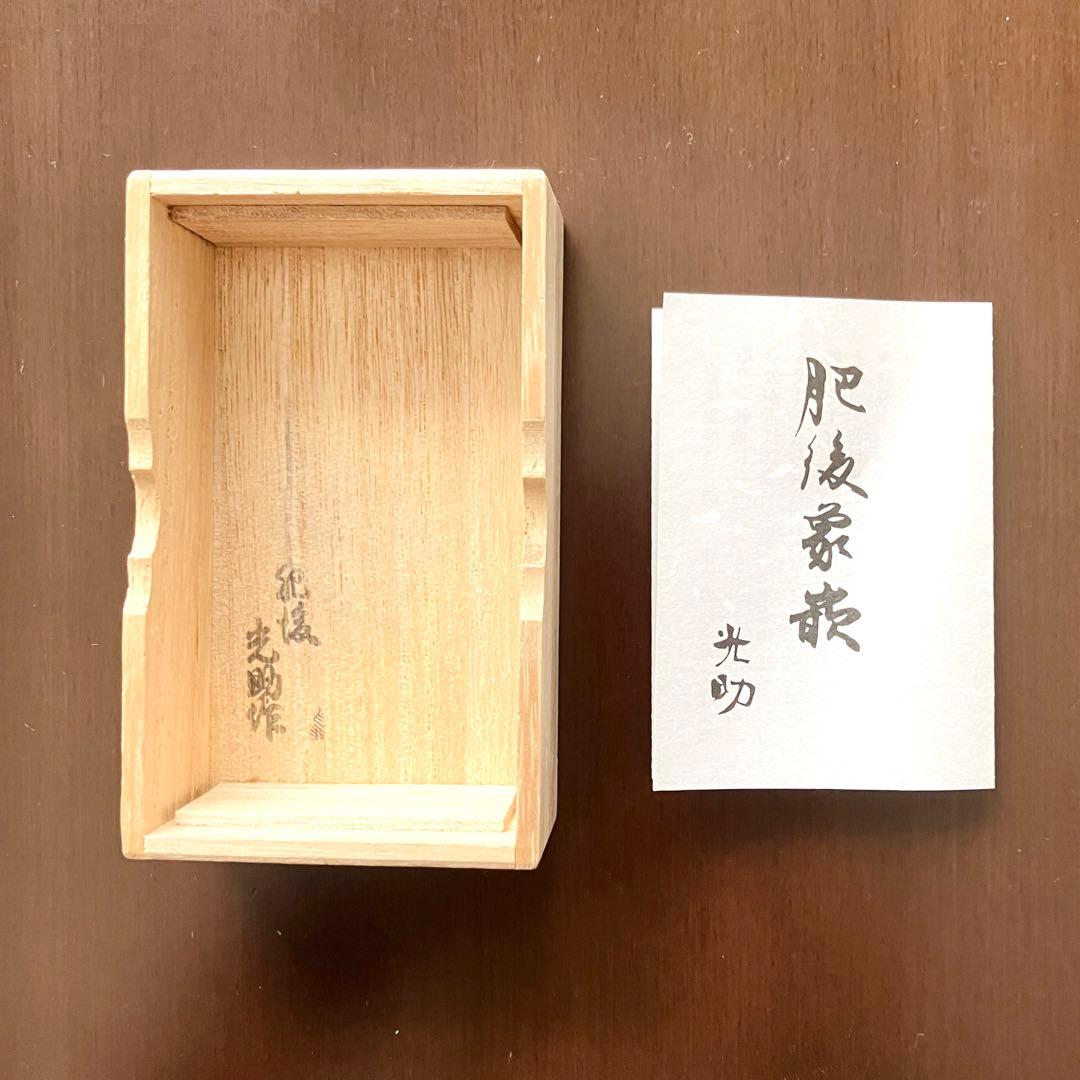 肥後
光助作
肥後象嵌
光助